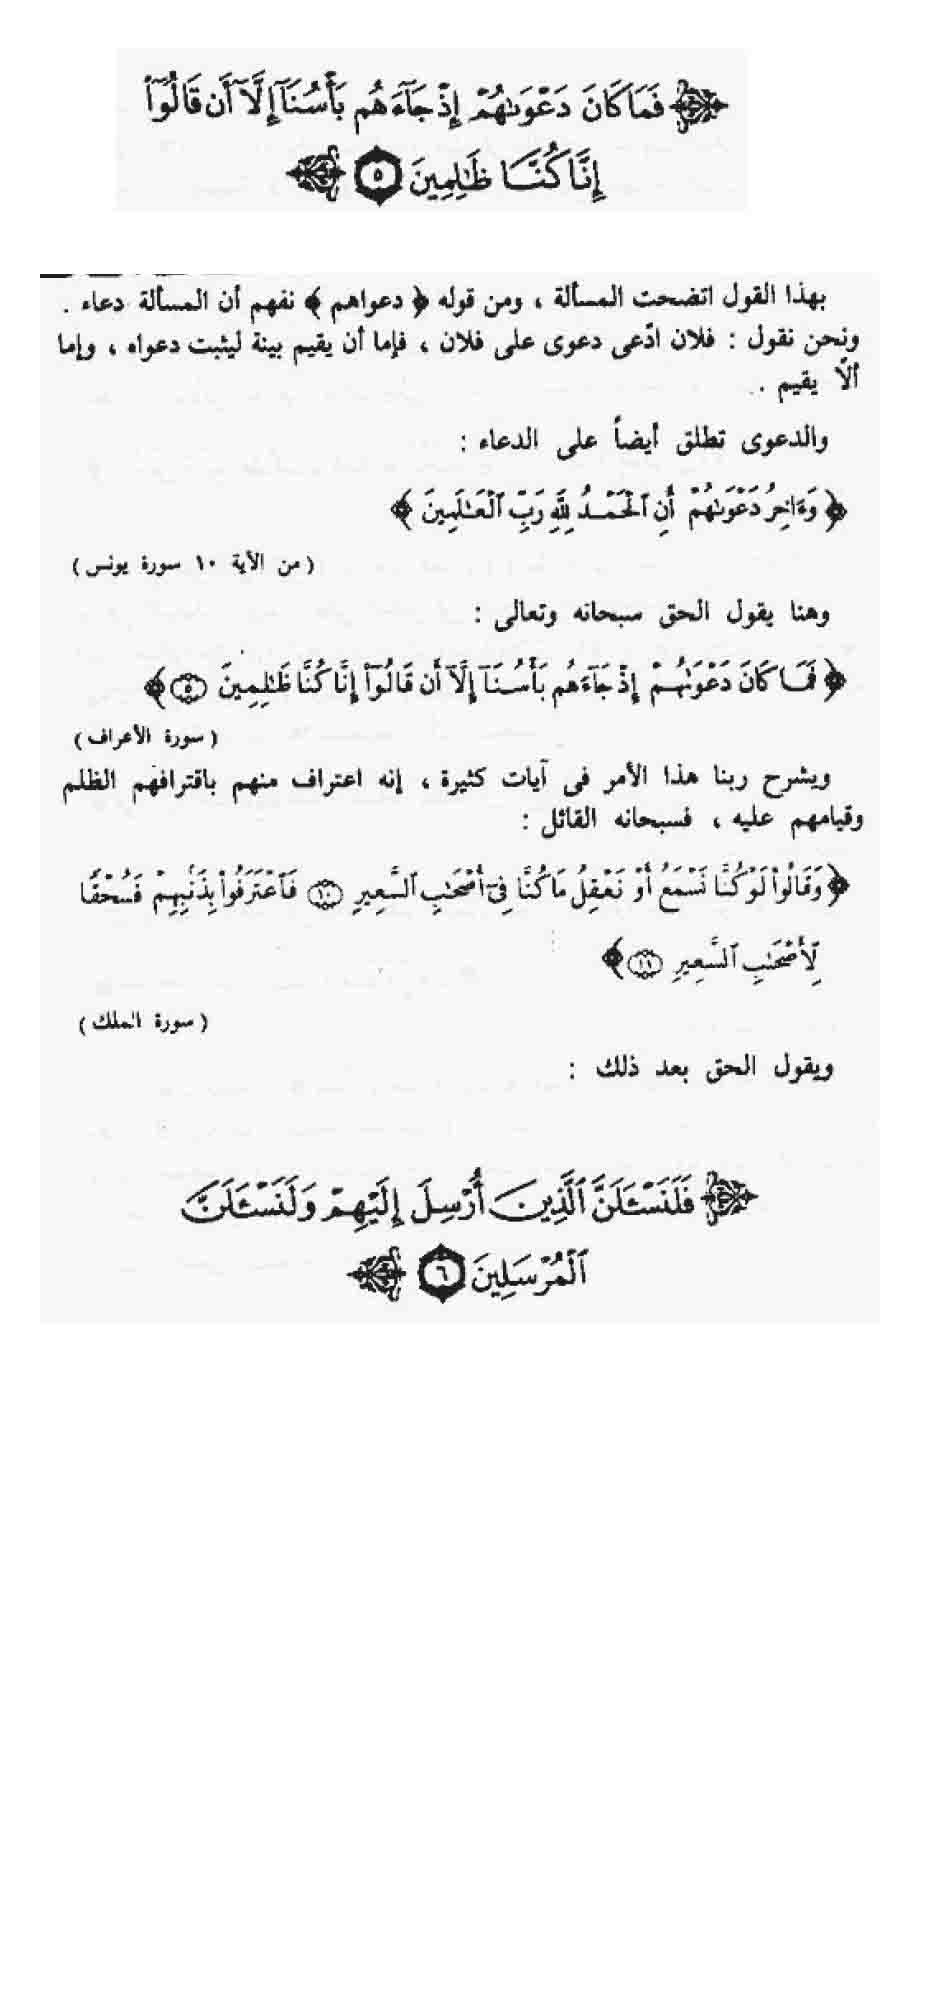 ﴿ فَمَا كَانَ دَعْوَىٰهُمْ إِذْ جَآءَهُم بَأْسُنَآ إِلَّآ أَن قَالُوٓا۟
إِنَّا كُنَّا ظَٰلِمِينَ ٥ ﴾
بهذا القول اتضحت المسألة ، ومن قوله ﴿ دعواهم ﴾ نفهم أن المسألة دعاء .
ونحن نقول : فلان ادّعى دعوى على فلان ، فإما أن يقيم بينة ليثبت دعواه ، وإما
ألّا يقيم .
والدعوى تطلق أيضاً على الدعاء :
﴿ وَءَاخِرُ دَعْوَىٰهُمْ أَنِ ٱلْحَمْدُ لِلَّهِ رَبِّ ٱلْعَٰلَمِينَ ﴾
( من الآية ١٠ سورة يونس )
وهنا يقول الحق سبحانه وتعالى :
﴿ فَمَا كَانَ دَعْوَىٰهُمْ إِذْ جَآءَهُم بَأْسُنَآ إِلَّآ أَن قَالُوٓا۟ إِنَّا كُنَّا ظَٰلِمِينَ ٥ ﴾
( سورة الأعراف )
ويشرح ربنا هذا الأمر فى آيات كثيرة ، إنه اعتراف منهم باقترافهم الظلم
وقيامهم عليه ، فسبحانه القائل :
﴿ وَقَالُوا۟ لَوْ كُنَّا نَسْمَعُ أَوْ نَعْقِلُ مَا كُنَّا فِىٓ أَصْحَٰبِ ٱلسَّعِيرِ ١٠ فَٱعْتَرَفُوا۟ بِذَنۢبِهِمْ فَسُحْقًا
لِّأَصْحَٰبِ ٱلسَّعِيرِ ١١ ﴾
( سورة الملك )
ويقول الحق بعد ذلك :
﴿ فَلَنَسْـَٔلَنَّ ٱلَّذِينَ أُرْسِلَ إِلَيْهِمْ وَلَنَسْـَٔلَنَّ
ٱلْمُرْسَلِينَ ٦ ﴾